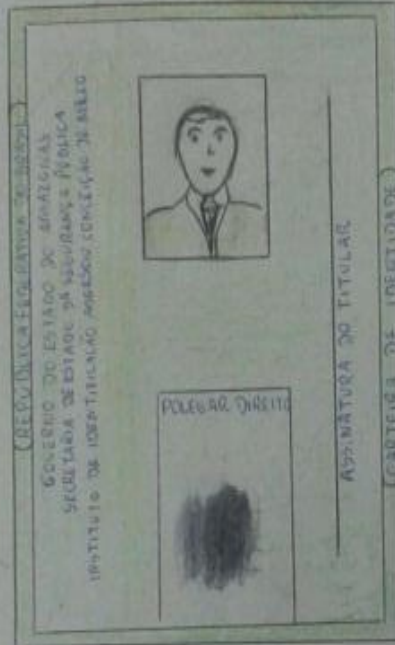 (REPÚBLICA FEDERATIVA DO BRASIL)
GOVERNO DO ESTADO DO AMAZONAS
SECRETARIA DE ESTADO DA SEGURANÇA PÚBLICA
INSTITUTO DE IDENTIFICAÇÃO CONCEIÇÃO DE MELLO
POLEGAR DIREITO
ASSINATURA DO TITULAR
(CARTEIRA DE IDENTIDADE)